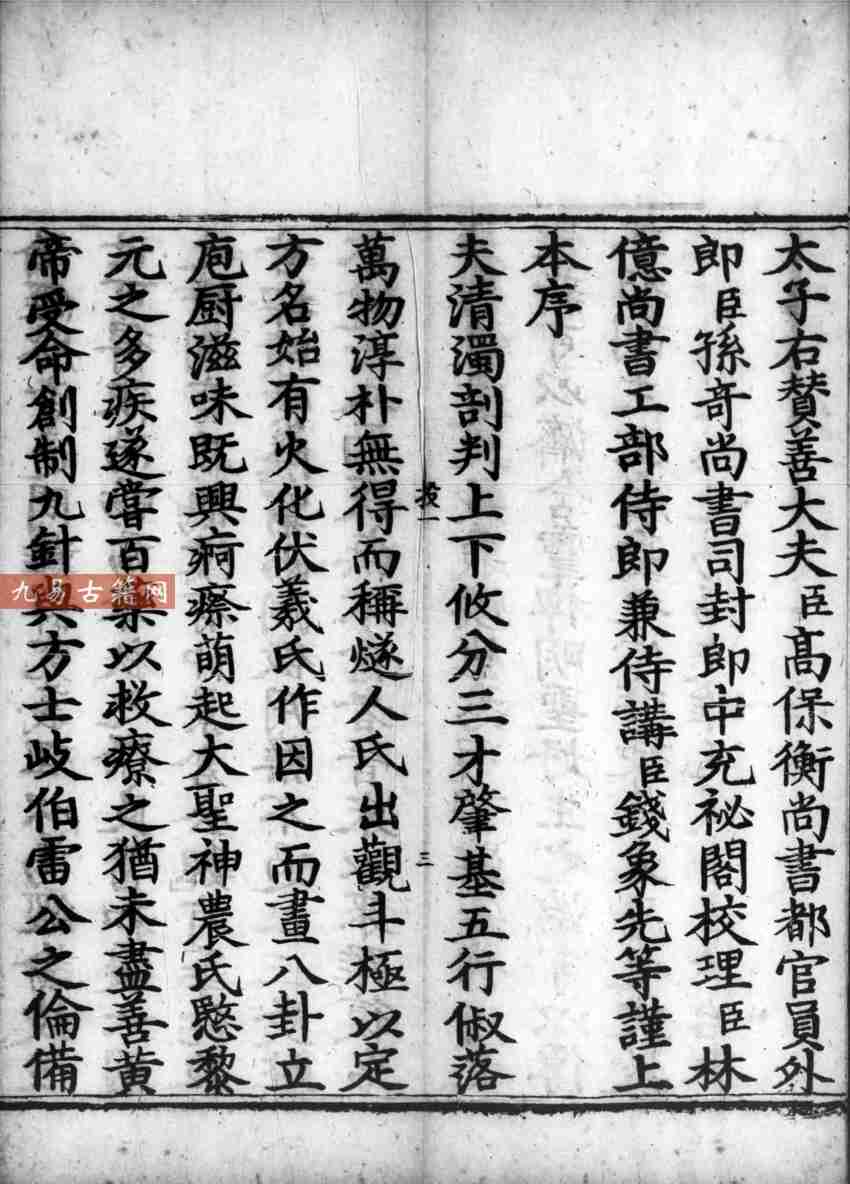 太子右贊善大夫臣高保衡尚書都官員外
郎臣孫奇尚書司封郎中充祕閣校理臣林
億尚書工部侍郎兼侍講臣錢象先等謹上
本序
夫清濁剖判上下攸分三才肇基五行俶落
萬物淳朴無得而稱燧人氏出觀斗極以定
方名始有火化伏羲氏作因之而畫八卦立
庖厨滋味既興痾瘵萌起大聖神農氏愍黎
元之多疾遂嘗百藥以救療之猶未盡善黄
帝受命創制九針與方士岐伯雷公之倫備
三
九易古籍网